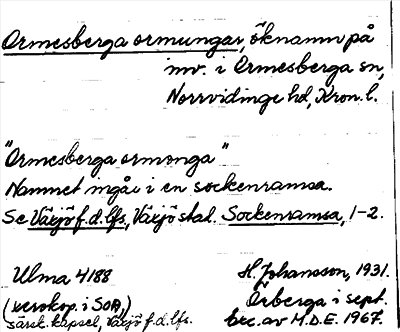 Ormesberga ormungar, öknamn på
inv. i Ormesberga sn,
Norrvidinge hd, Kron. l.
"Ormesberga ormonga"
Namnet ingår i en sockenramsa.
Se Växjö f.d. lfs, Växjö stad. Sockenramsa, 1-2.
Ulma 4188
(xerokop. i SOA,)
särsk. kapsel, Växjö f.d. lfs.
H. Johansson, 1931.
Örberga i sept.
exc. av M.D.E. 1967.